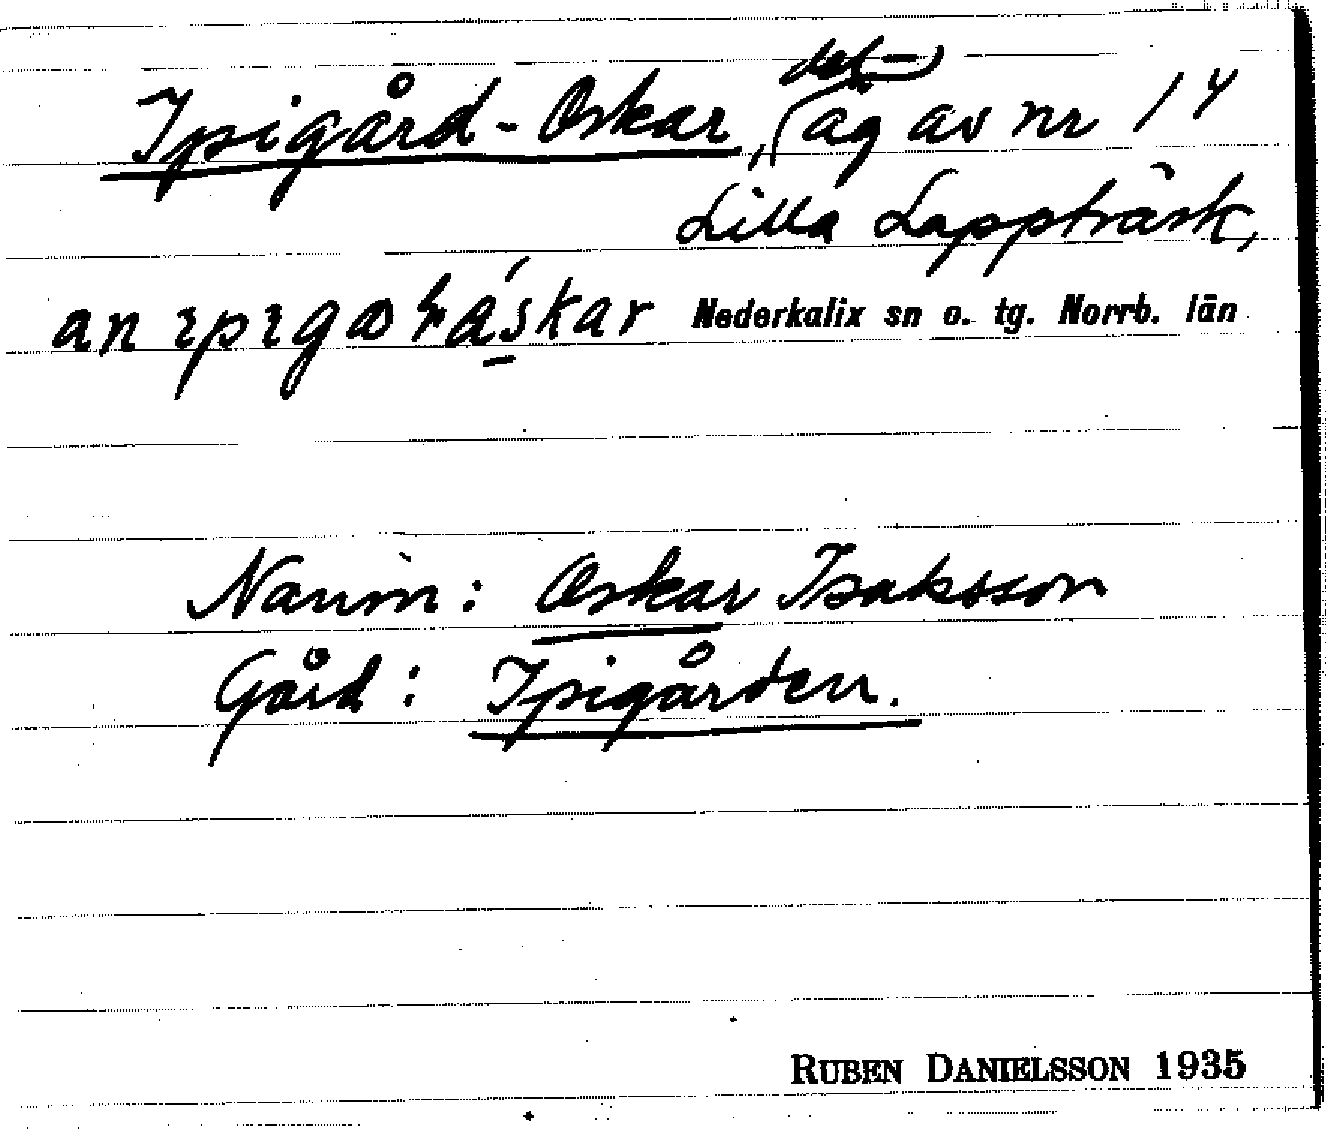 Ipigård-Oskar, (del-)äg av nr 14
Lilla Lappträsk,
Nederkalix sn o. tg. Norrb. län
Namn: Oskar Isaksson
Gård: Ipigården.
RUBEN DANIELSSON 1935